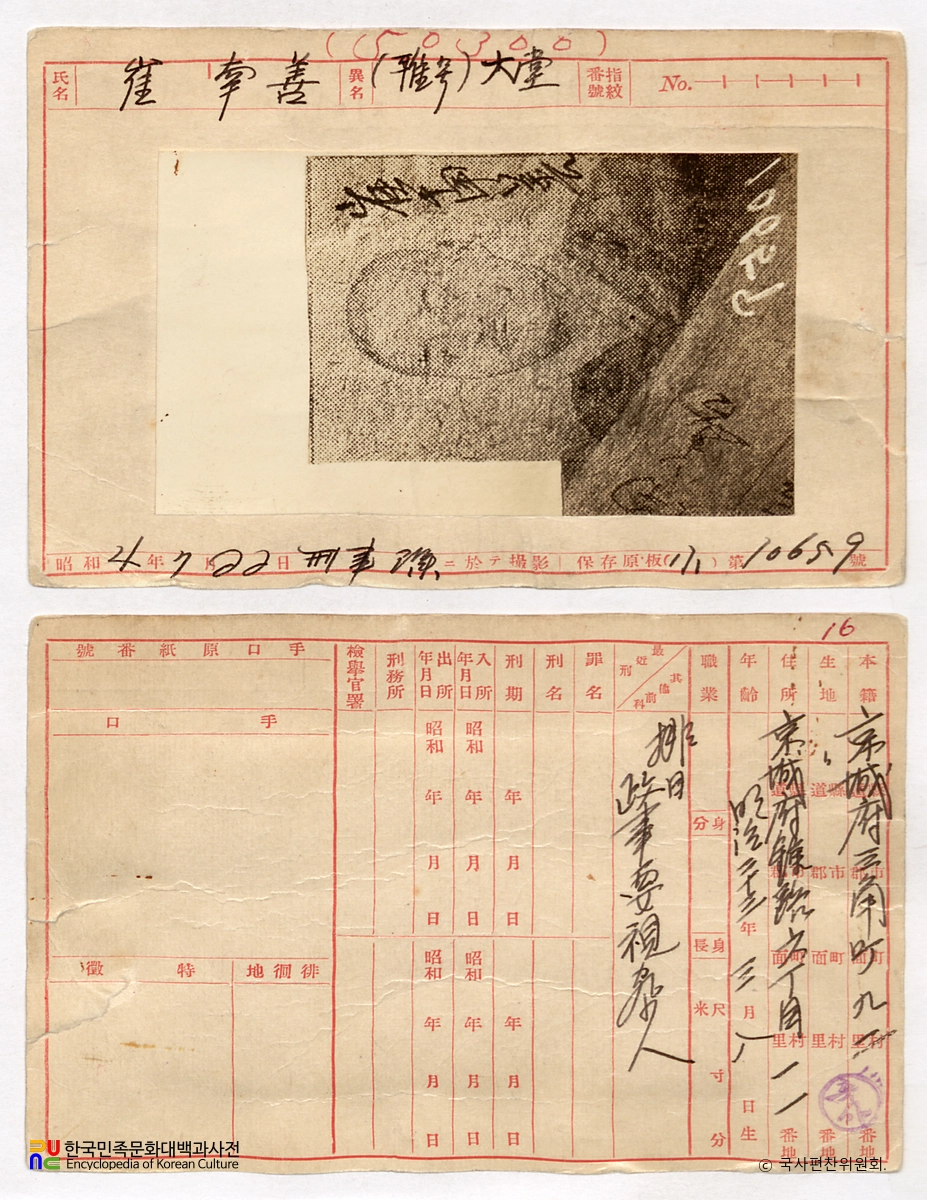 (50300)
氏名 崔南善 異名 (雅号) 大堂 指紋番號 No.
昭和 4 年 7 月 22 日 刑事課 ニ於テ撮影 保存原板( ) 第 10659 號
16
本籍 京城府三角町九
生地 道縣 郡市 面町 里村 番地
住所 京城府鍾路六丁目一一 番地
年齡 明治二十三年三月八日生
職業 身分 身長 米 尺 寸 分
最近刑 其他前科
排日
政事要視察人
罪名
刑名
刑期 年 月 日 年 月 日
入所年月日 昭和 年 月 日 昭和 年 月 日
出所年月日 昭和 年 月 日 昭和 年 月 日
刑務所
檢擧官署
手口原紙番號
手口
徘徊地
特徵
한국민족문화대백과사전
Encyclopedia of Korean Culture
© 국사편찬위원회.